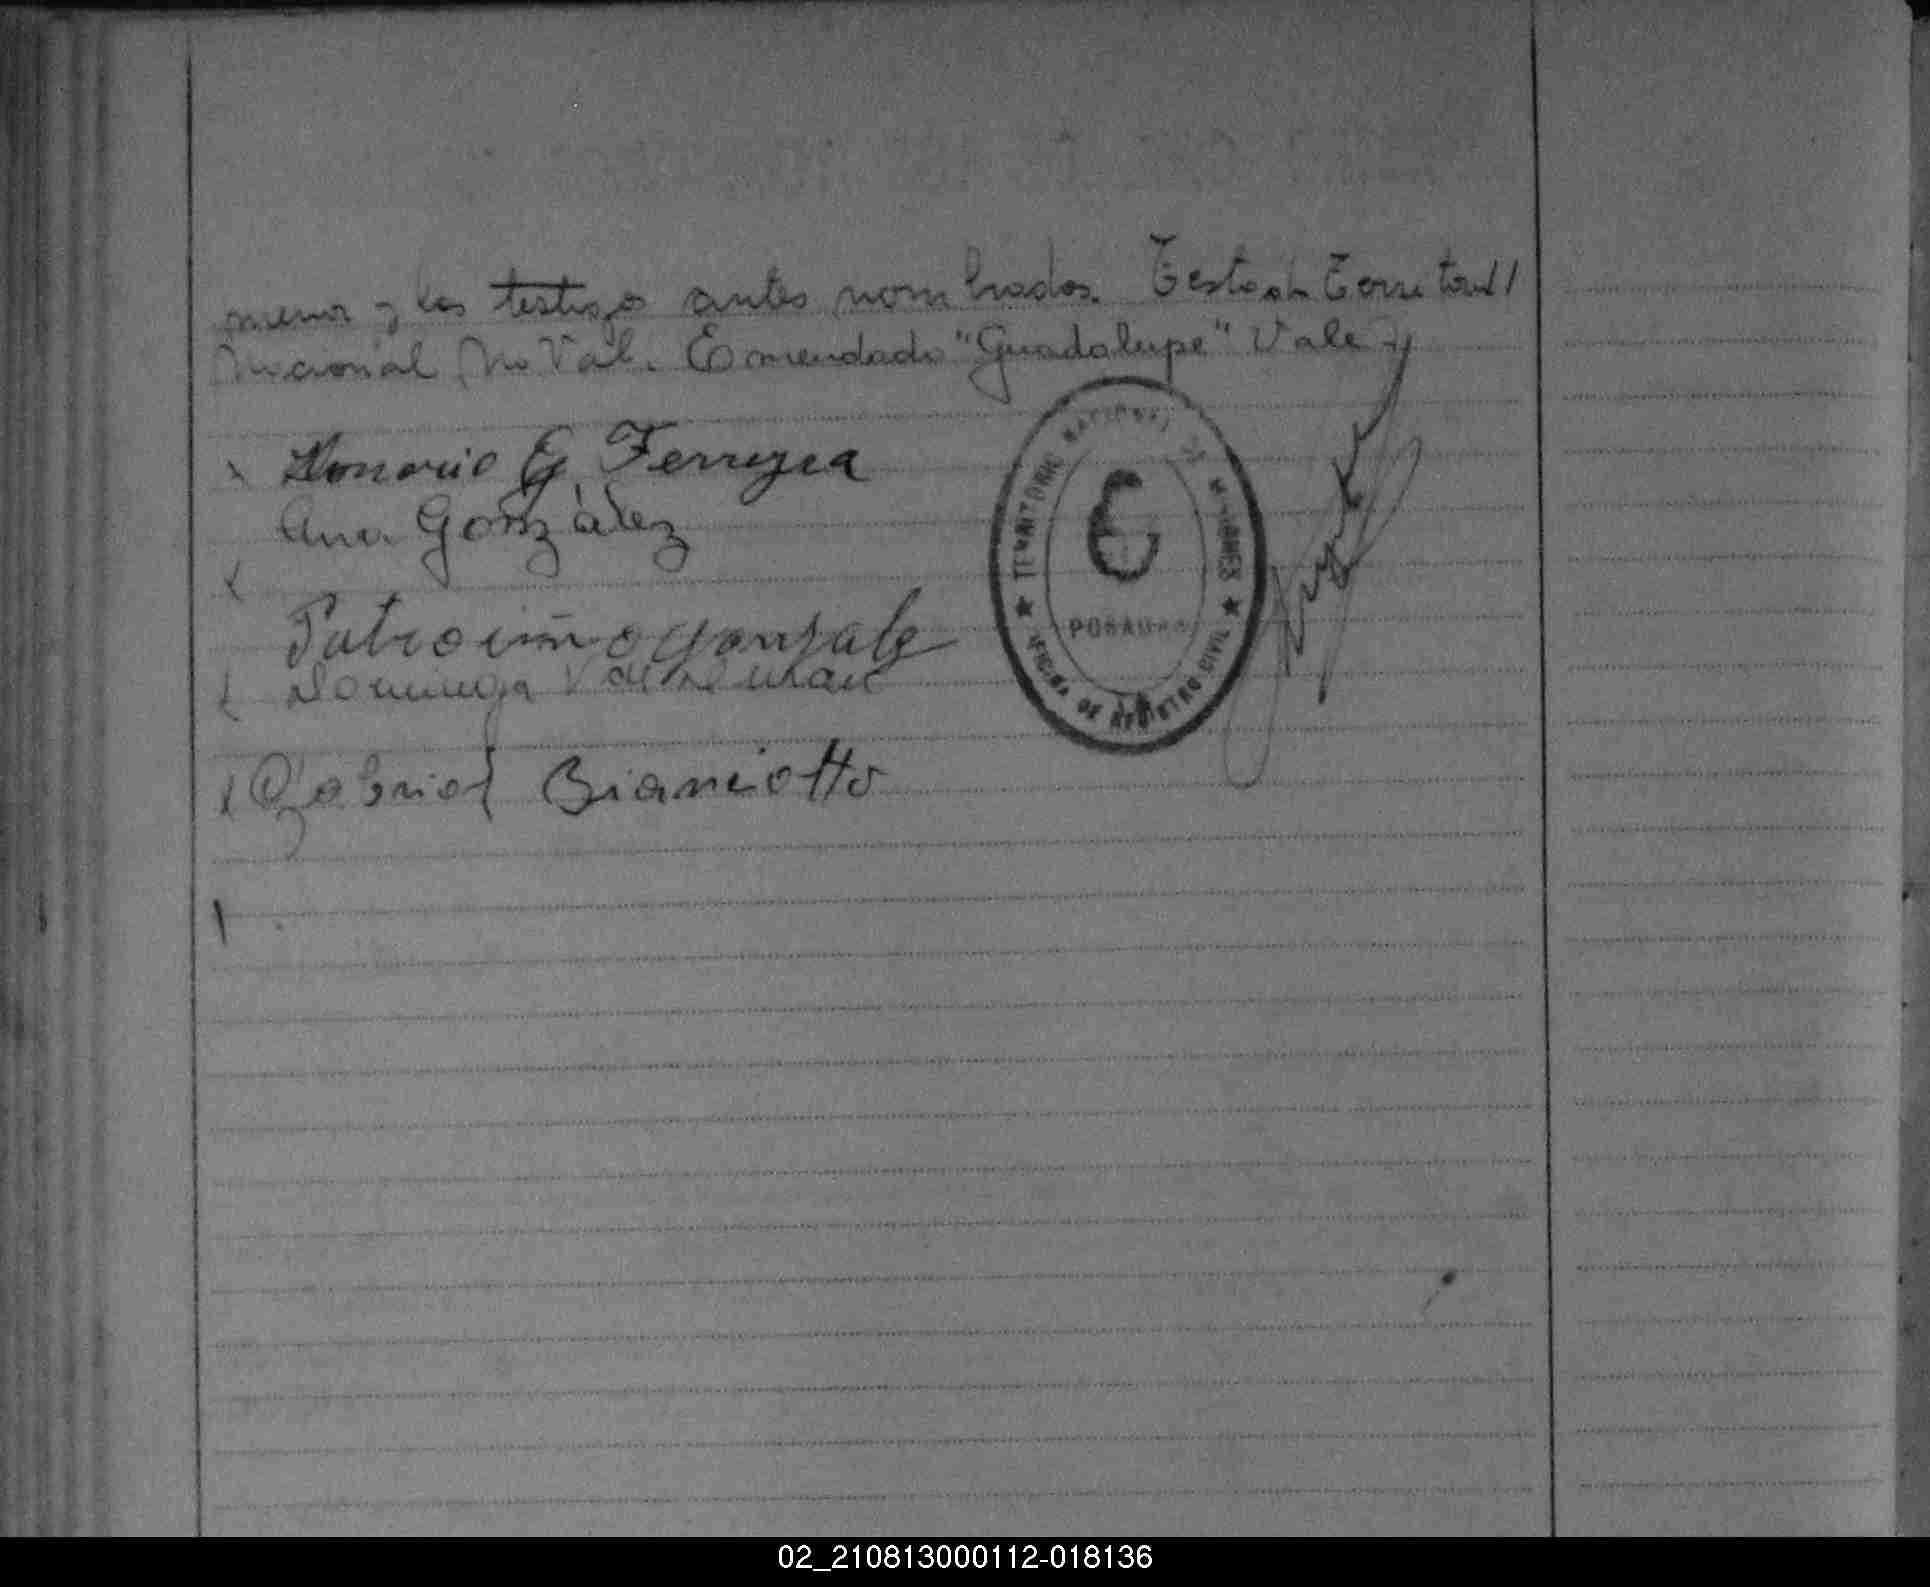 menor y los testigo antes nombrados. Testado Territorl
Nacional No Val. Enmendado "Guadalupe" Vale
Honorio G Ferreyra
Ana González
Patrocinio Gonzalez
Dominga
Gabriel Bianciotto
TERRITORIO NACIONAL DE MISIONES
POSADAS
OFICINA DE REGISTRO CIVIL
02_210813000112-018136